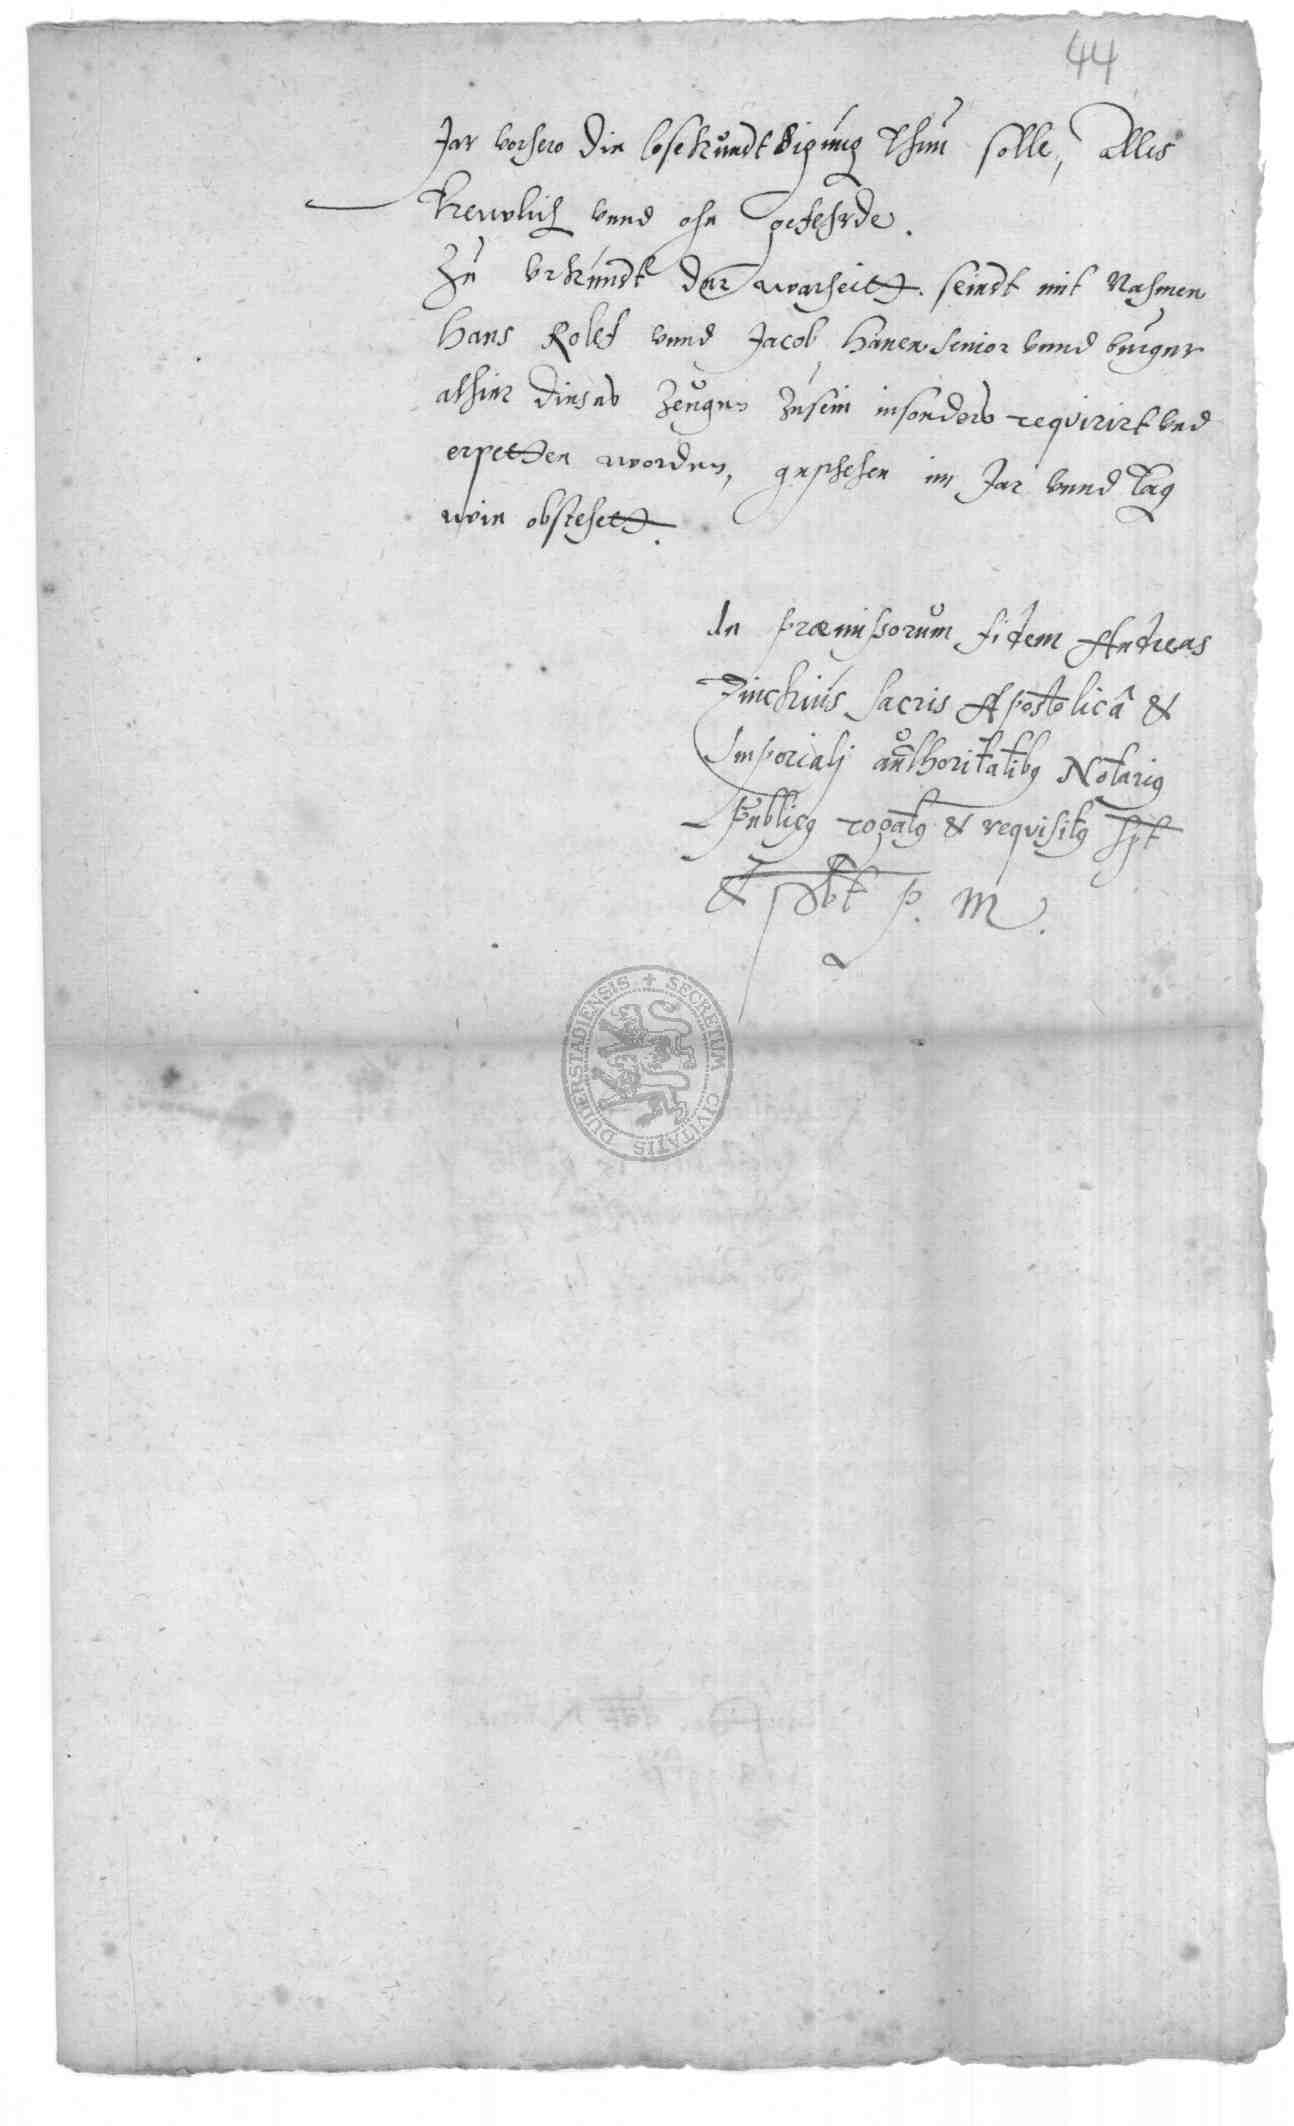 44
Jar vorhero die losekundtdigung thun solle, alles
trewlich vnnd ohn gefehrde.
Zu vrkundt der warheitt. seindt mit Nahmen
Hans Rolef vnnd Jacob Hanen Senior vnnd burger
alhier dieses Zeuges Zusein insonders requirirt vnd
erpetten worden, geschehen im Jar vnnd tag
wie obstehett.
In præmissorum fidem Andreas
Zinckius sacris Apostolicâ &
Imperialj authoritatibq Notariq
Publicq rogatq & requisitq spt
& sbt p. m.
SECRETUM CIVITATIS DUDERSTADIENSIS